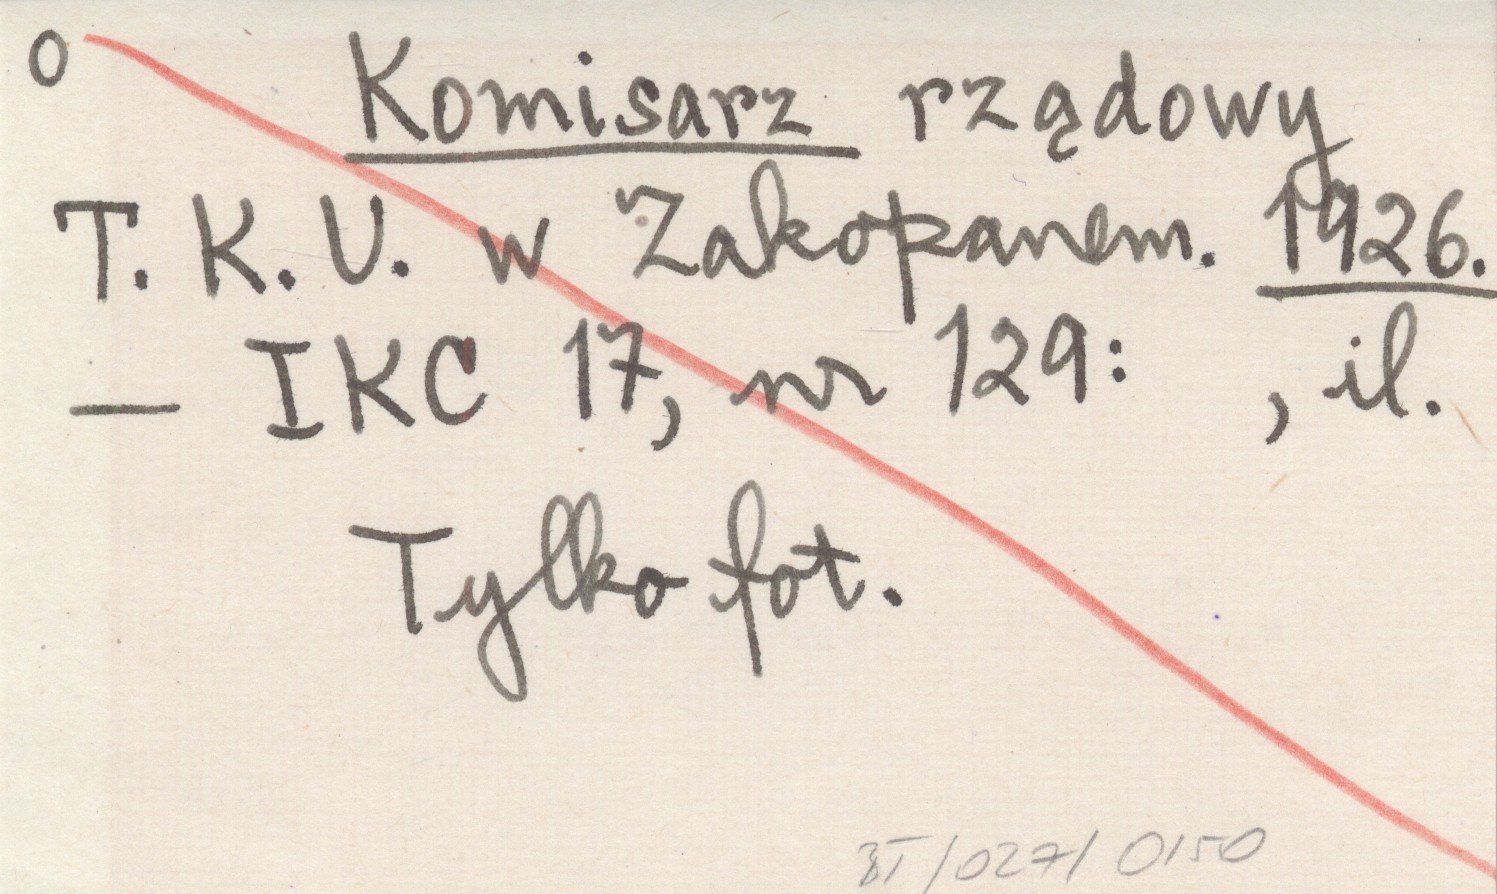 o Komisarz rządowy
T. K. U. w Zakopanem. 1926.
— IKC 17, nr 129: , il.
Tylko fot.
BT/027/0150